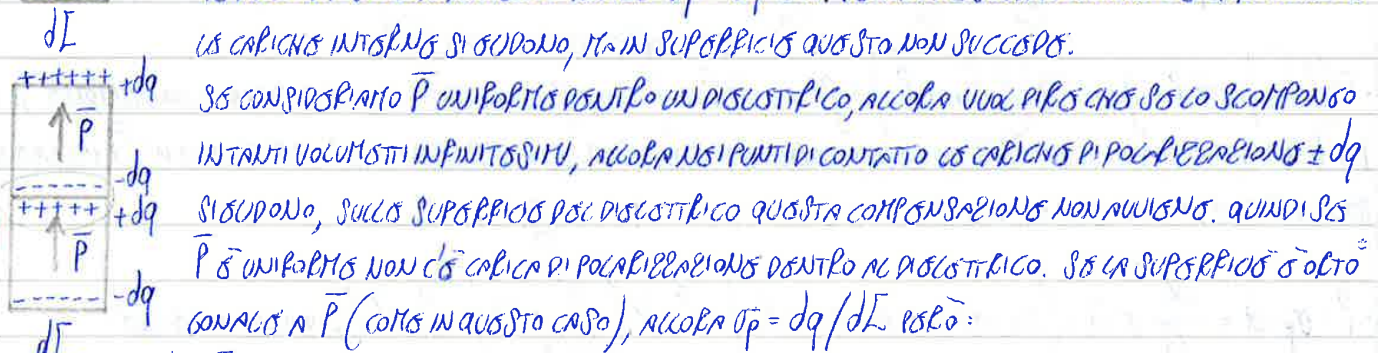 dΣ
LE CARICHE INTERNE SI ELIDONO, MA IN SUPERFICIE QUESTO NON SUCCEDE.
++++++ +dq
SE CONSIDERIAMO P̅ UNIFORME DENTRO UN DIELETTRICO, ALLORA VUOL DIRE CHE SE LO SCOMPONGO
P̅
IN TANTI VOLUMETTI INFINITESIMI, ALLORA NEI PUNTI DI CONTATTO LE CARICHE DI POLARIZZAZIONE ± dq
----- -dq
+++++ +dq
SI ELIDONO, SULLE SUPERFICIE DEL DIELETTRICO QUESTA COMPENSAZIONE NON AVVIENE. QUINDI SE
P̅
P̅ È UNIFORME NON C'È CARICA DI POLARIZZAZIONE DENTRO AL DIELETTRICO. SE LA SUPERFICIE È ORTO
------ -dq
GONALE A P̅ (COME IN QUESTO CASO), ALLORA σp = dq/dΣ PERÒ:
dΣ